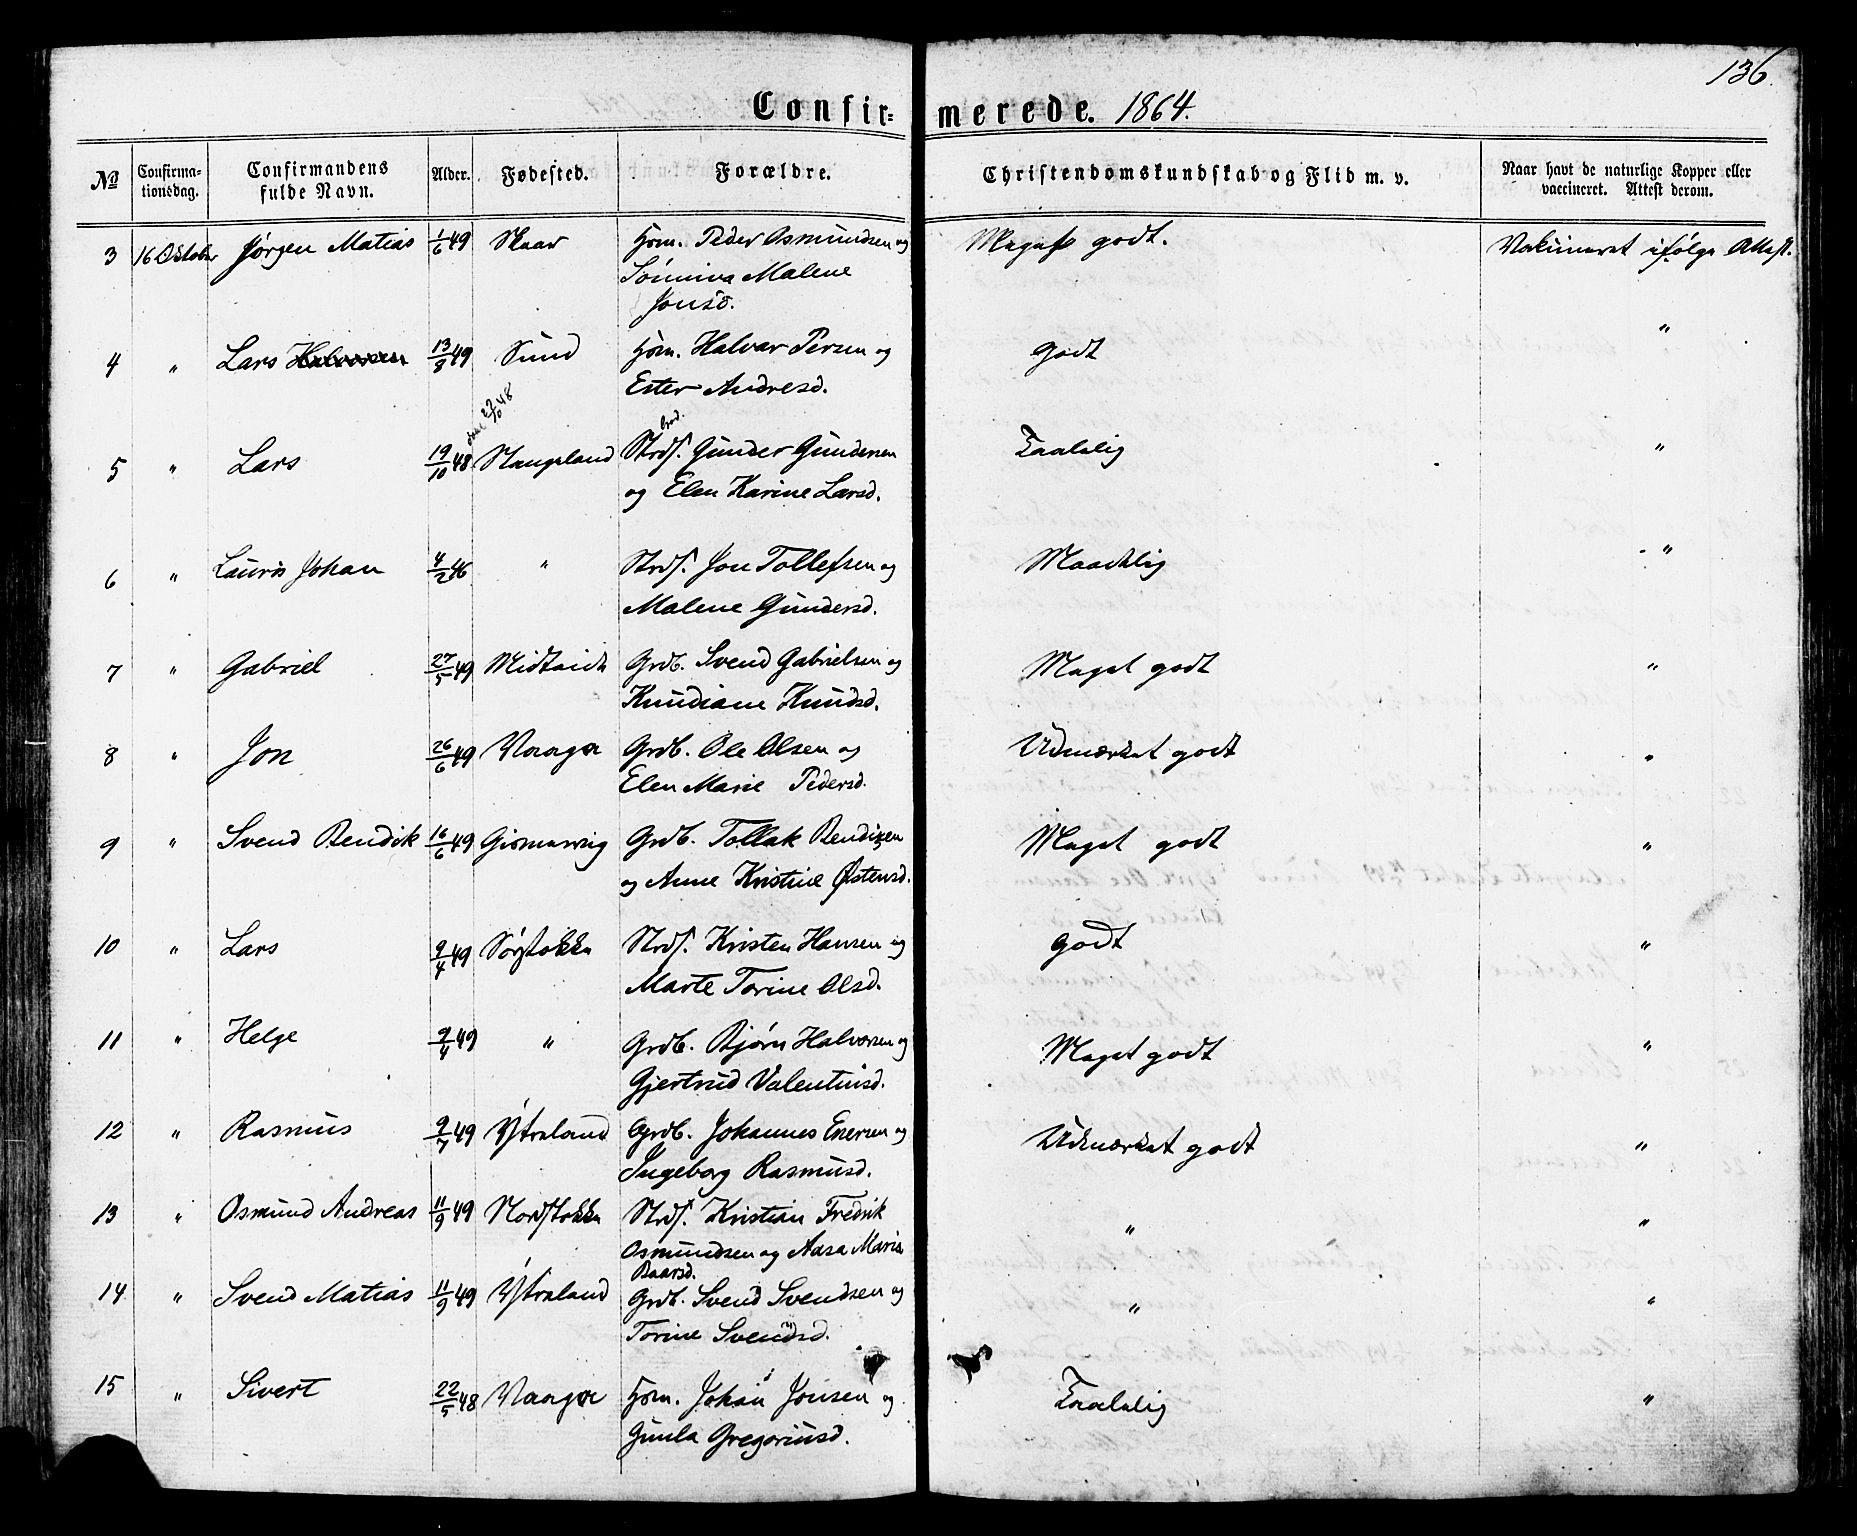 136.
Confir= merede. 1864.
№ Confirma- tionsdag. Confirmandens fulde Navn. Alder. Fødested. Forældre. Christendomskundskab og Flid m. v. Naar havt de naturlige Kopper eller vaccineret. Attest derom.
3 16 Oktober Jørgen Matias 1/6 49 Skaar Hsm. Peder Osmundsen og Meget godt. Vakcineret ifølge Attest.
Sønniva Malene
Jonsd.
4 " Lars Halvorsen 13/8 49 Sund Hsm. Halvar Persen og godt "
Ester Andresd.
27/10 48
5 " Lars 19/10 48 Stangeland Strds. Gunder Gundersen Taalelig "
og Elen Karine Larsd.
6 " Lauris Johan 4/2 46 " Strds. Jon Tollefsen og Maadelig "
Malene Gundersd.
7 " Gabriel 27/5 49 Midteide Grdb. Svend Gabrielsen og Meget godt "
Knudiane Knudsd.
8 " Jon 26/6 49 Vaage Grdb. Ole Olsen og Udmærket godt "
Elen Marie Pedersd.
9 " Svend Bendik 16/6 49 Gismarvig Grdb. Tollak Bendixen Meget godt "
og Anne Kristine Østensd.
10 " Lars 9/4 49 Sørstokke Strds. Kristen Hansen og godt "
Marte Torine Olsd.
11 " Helge 9/4 49 " Grdb. Bjørn Halvorsen og Meget godt "
Gjertrud Valentinsd.
12 " Rasmus 9/7 49 Ytraland Grdb. Johannes Enersen og Udmærket godt "
Ingeborg Rasmusd.
13 " Osmund Andreas 11/9 49 Nordstokke Strds. Kristian Fredrik " "
Osmundsen og Aasa Maria
Baarsd.
14 " Svend Matias 11/9 49 Ytraland Grdb. Svend Svendsen og " "
Torine Svendsd.
15 " Sivert 22/5 48 Vaage Hsm. Johan Jonsen og Taalelig "
Gunla Gregoriusd.